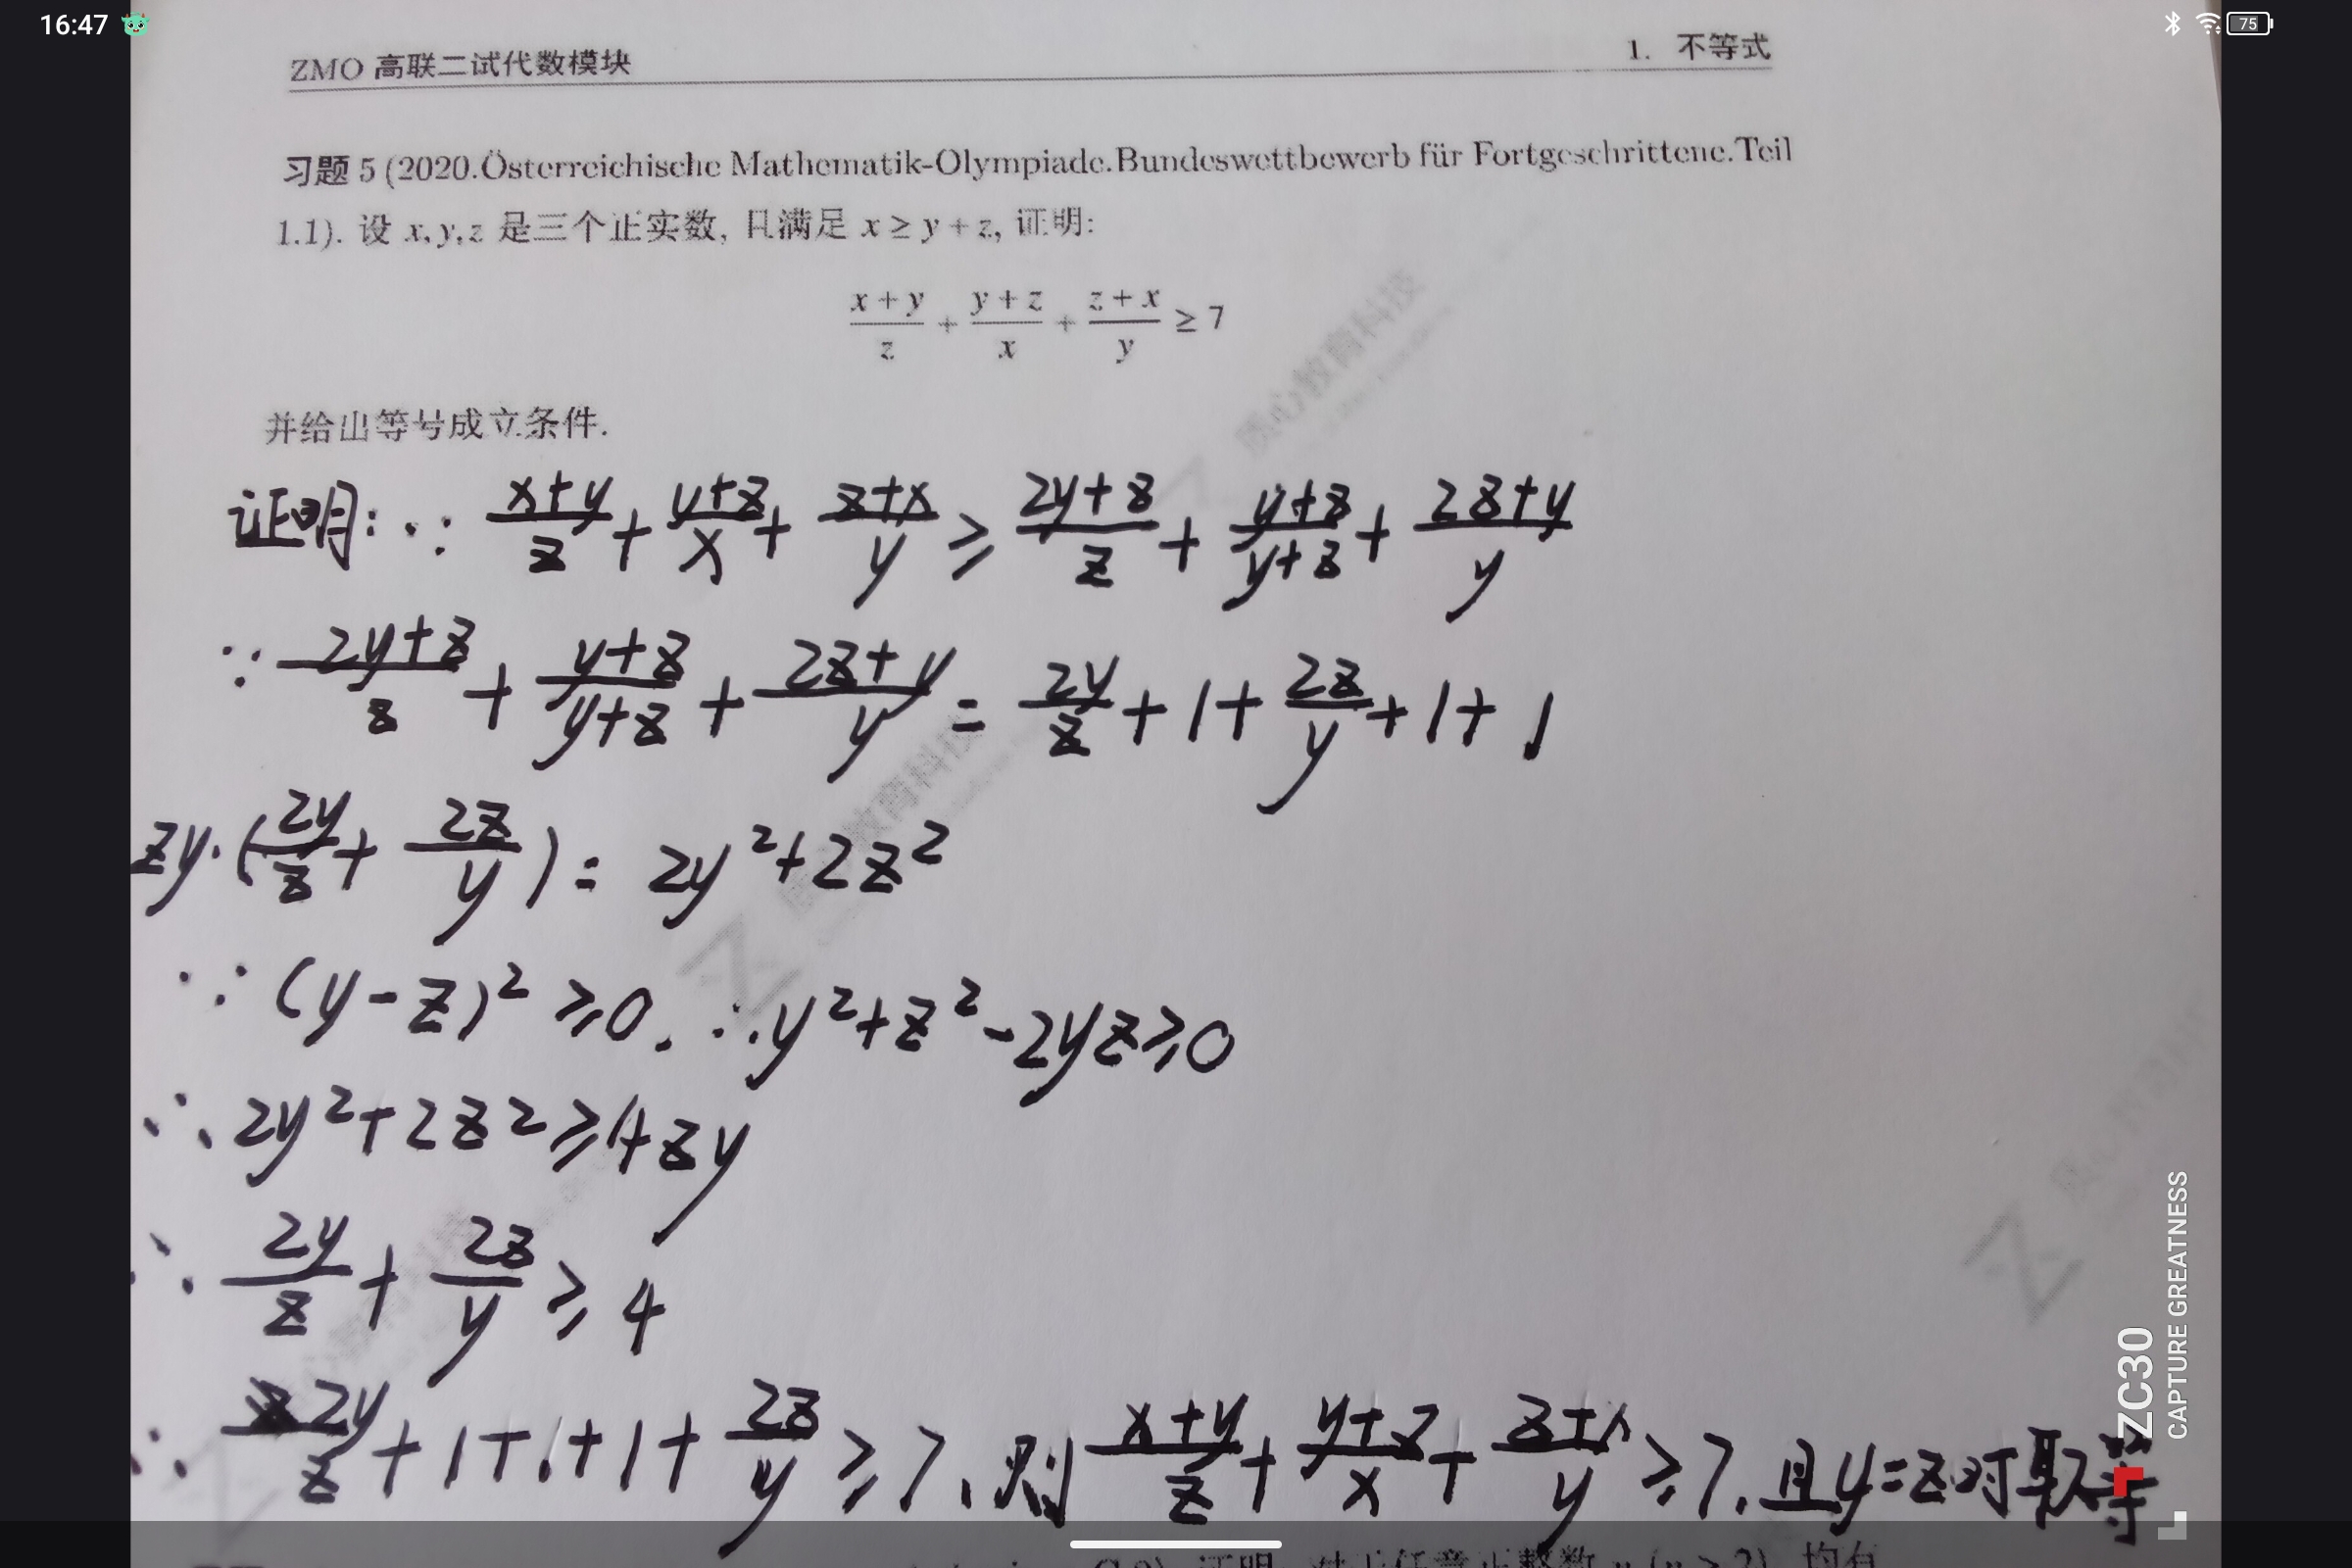 16:47
75
ZMO 高联二试代数模块
1. 不等式
习题 5 (2020.Österreichische Mathematik-Olympiade.Bundeswettbewerb für Fortgeschrittene.Teil
1.1). 设 x, y, z 是三个正实数, 且满足 x ≥ y + z, 证明:
(x + y)/z + (y + z)/x + (z + x)/y ≥ 7
并给出等号成立条件.
证明: ∵ (x+y)/z + (y+z)/x + (z+x)/y ≥ (2y+z)/z + (y+z)/(y+z) + (2z+y)/y
∵ (2y+z)/z + (y+z)/(y+z) + (2z+y)/y = 2y/z + 1 + 2z/y + 1 + 1
zy·(2y/z + 2z/y) = 2y²+2z²
∵ (y-z)² ≥0. ∴ y²+z²-2yz≥0
∴ 2y²+2z²≥4zy
∴ 2y/z + 2z/y ≥ 4
∴ 2y/z + 1+1+1+ 2z/y ≥7, 则 (x+y)/z + (y+z)/x + (z+x)/y ≥7. 且y=z时取等
质心教育科技
教育科技
ZC30
CAPTURE GREATNESS